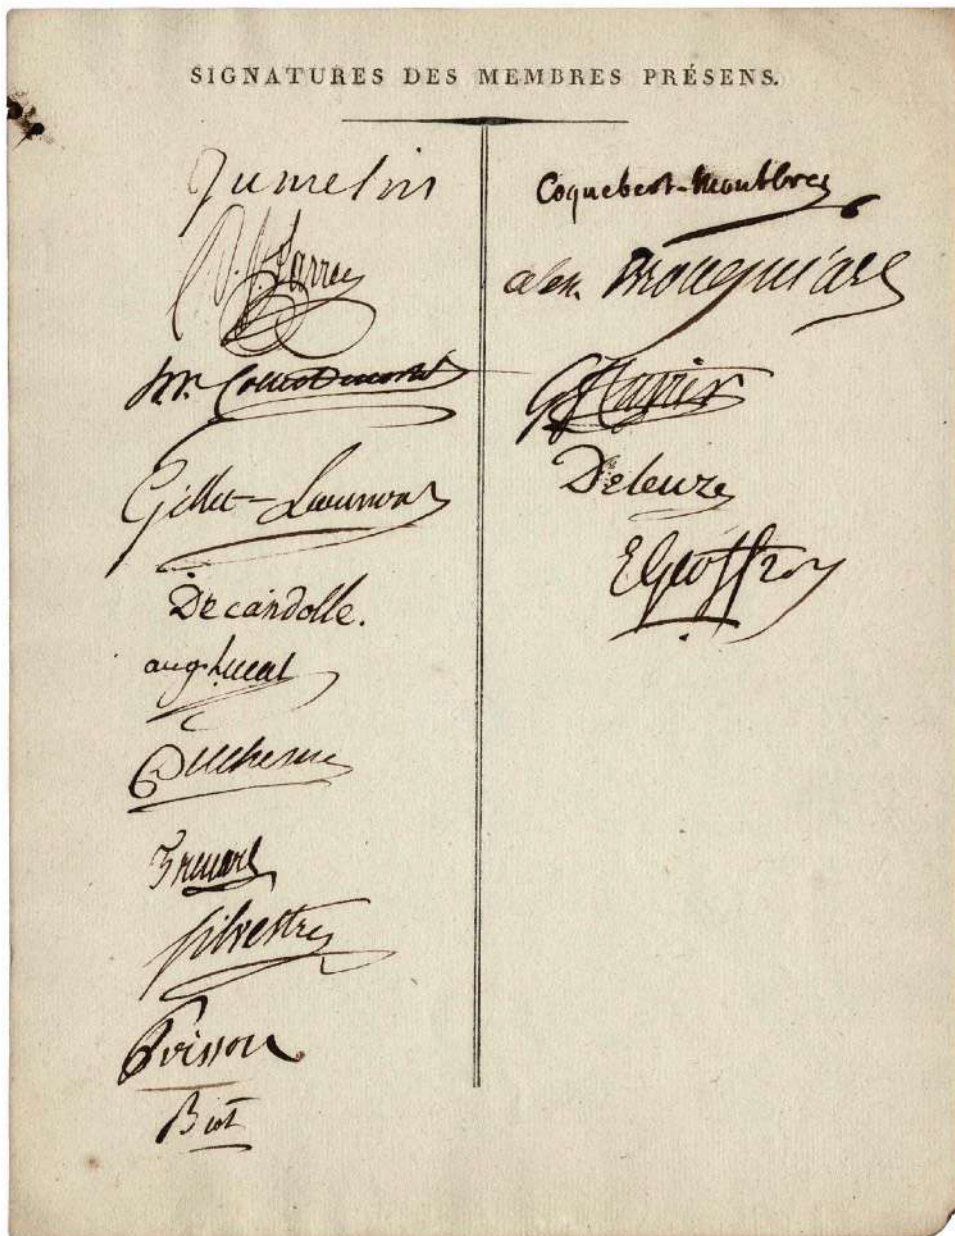 SIGNATURES DES MEMBRES PRÉSENS.
Jumelin
Gillet-Laumont
Decandolle.
aug. Lucas
Duchesne
Silvestre
Poisson
Biot
Coquebert-Montbret
alex. Brongniart
G Cuvier
Deleuze
E Geoffroy